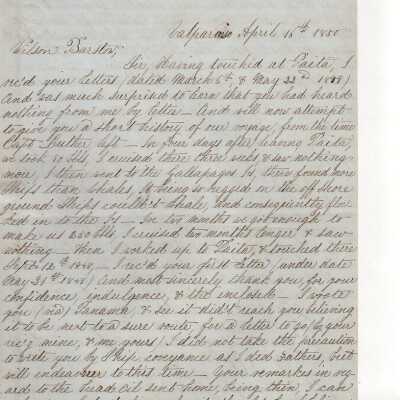 Valparaiso April 15th 1850
Wilson Barstow,
Sir, Having touched at Paita, I
rec'd your letters (dated March 5th & May 22d 1849)
And was much surprised to learn that you had heard
nothing from me by letter — And will now attempt
to give you a short history of our voyage, from the time
Capt Luther left — In four days after leaving Paita,
we took Bbls, I cruised there three weeks & saw nothing
more, I then went to the Gallapagos Is, there found more
Ships than Whales, it being so rugged in the off shore
ground Ships couldn't whale, and consequently
in to the Is — In two months we got enough to
make us 850 Bbls I cruised two months longer & saw
nothing — then I worked up to Paita, & touched there
Sept 12th — I rec'd your first letter (under date
May 21st) And most sincerely thank you, for your
confidence, indulgence, & the enclosed — I wrote
you (via) Panama, & see it didn't reach you believing
it to be next to a sure route, for a letter to go, (by your
re'g mine, & me yours) I did not take the precaution
to write you by Ship conveyance as I did others, but
will endeavor to this time — Your remarks in re-
gard to the head oil sent home, being thin, I can